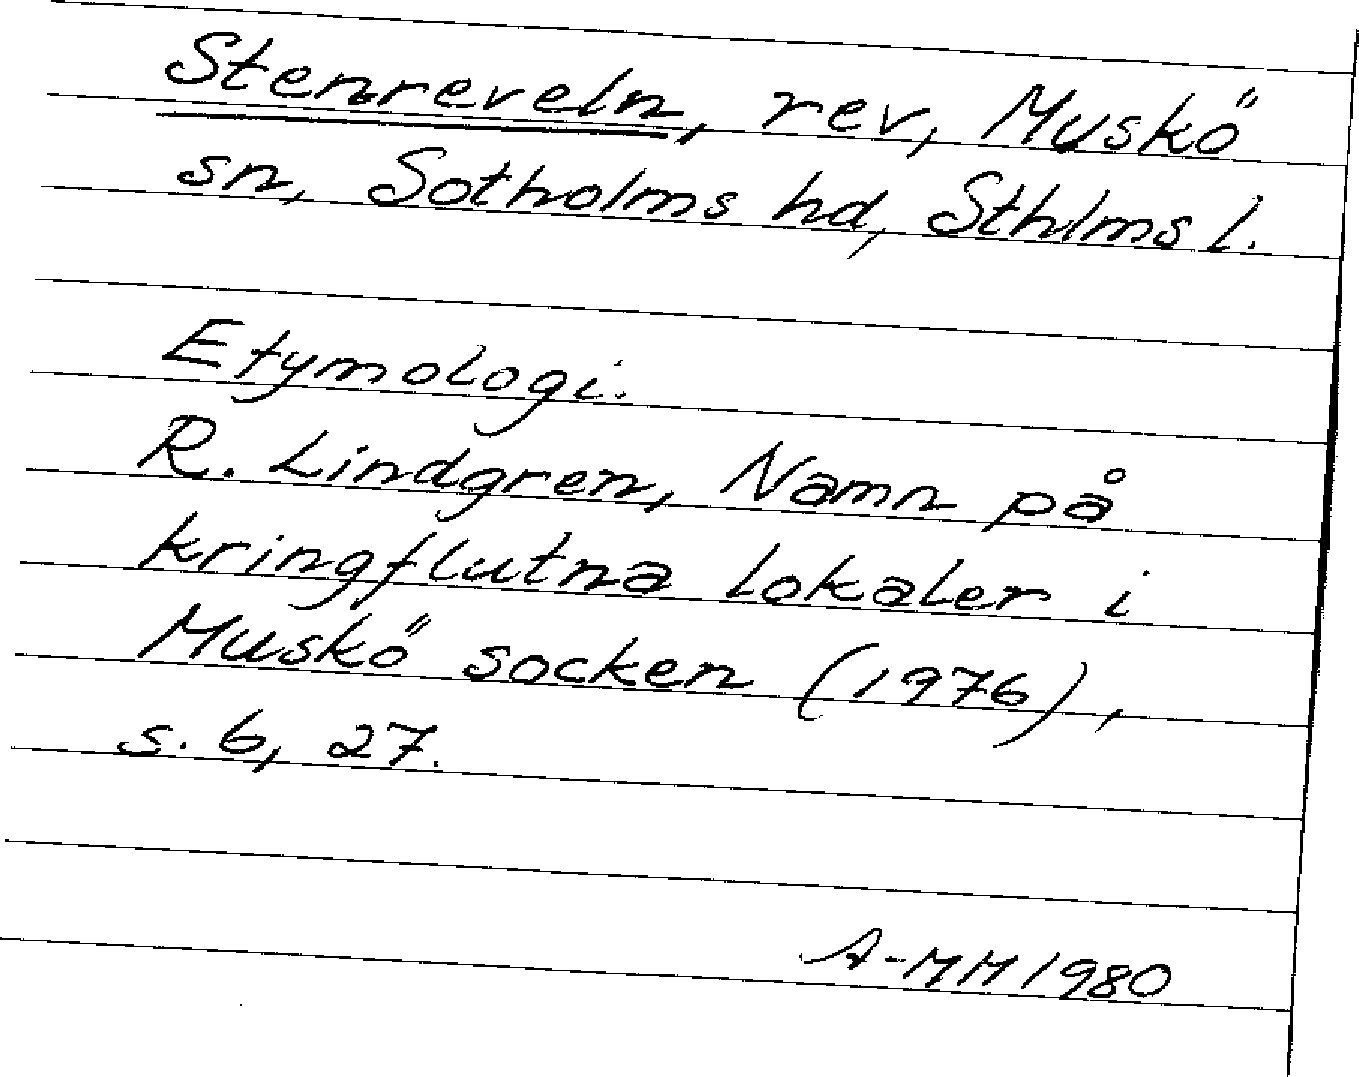 Stenreveln, rev, Muskö
sn, Sotholms hd, Sthlms l.
Etymologi.
R. Lindgren, Namn på
kringflutna lokaler i
Muskö socken (1976),
s. 6, 27.
A-MH 1980